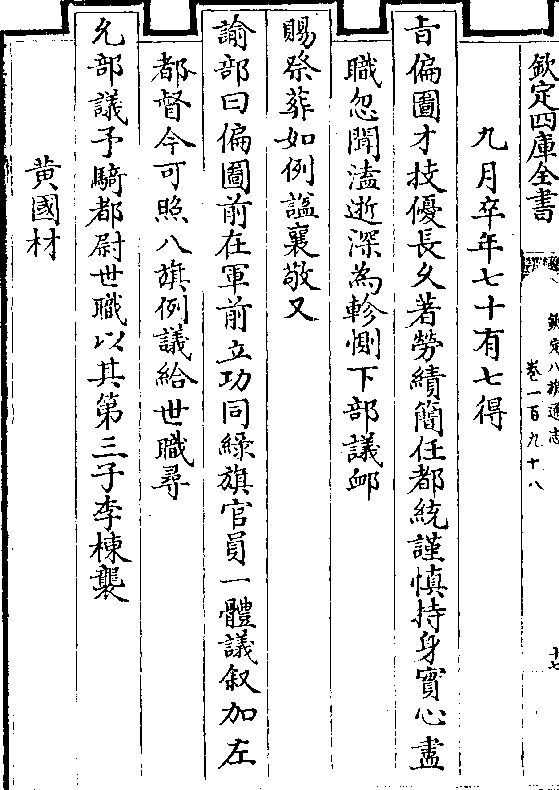 欽定四庫全書
欽定八旗通志
卷一百九十八
十七
九月卒年七十有七得
㫖偏圖才技優長久著勞績簡任都統謹慎持身實心盡
職忽聞溘逝深為軫惻下部議卹
賜祭葬如例謚襄敬又
諭部曰偏圖前在軍前立功同緑旗官員一體議叙加左
都督今可照八旗例議給世職尋
允部議予騎都尉世職以其第三子李棟襲
黄國材